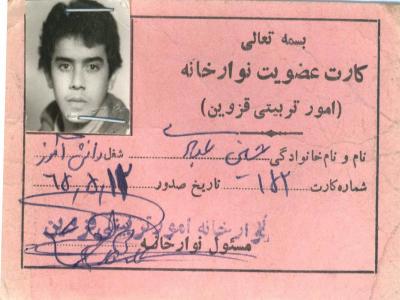 بسمه تعالی
کارت عضویت نوارخانه
(امور تربیتی قزوین)
نام و نام خانوادگی شغل دانش آموز
شماره کارت ۱۸۲ تاریخ صدور ۶۵,۸,۱۲
نوارخانه امور تربیتی قزوین
مسئول نوارخانه